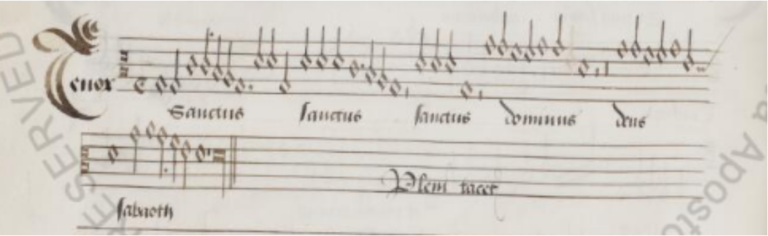 Tenor
Sanctus sanctus sanctus dominus deus
sabaoth
Pleni tacet
RESERVED
a Aposto